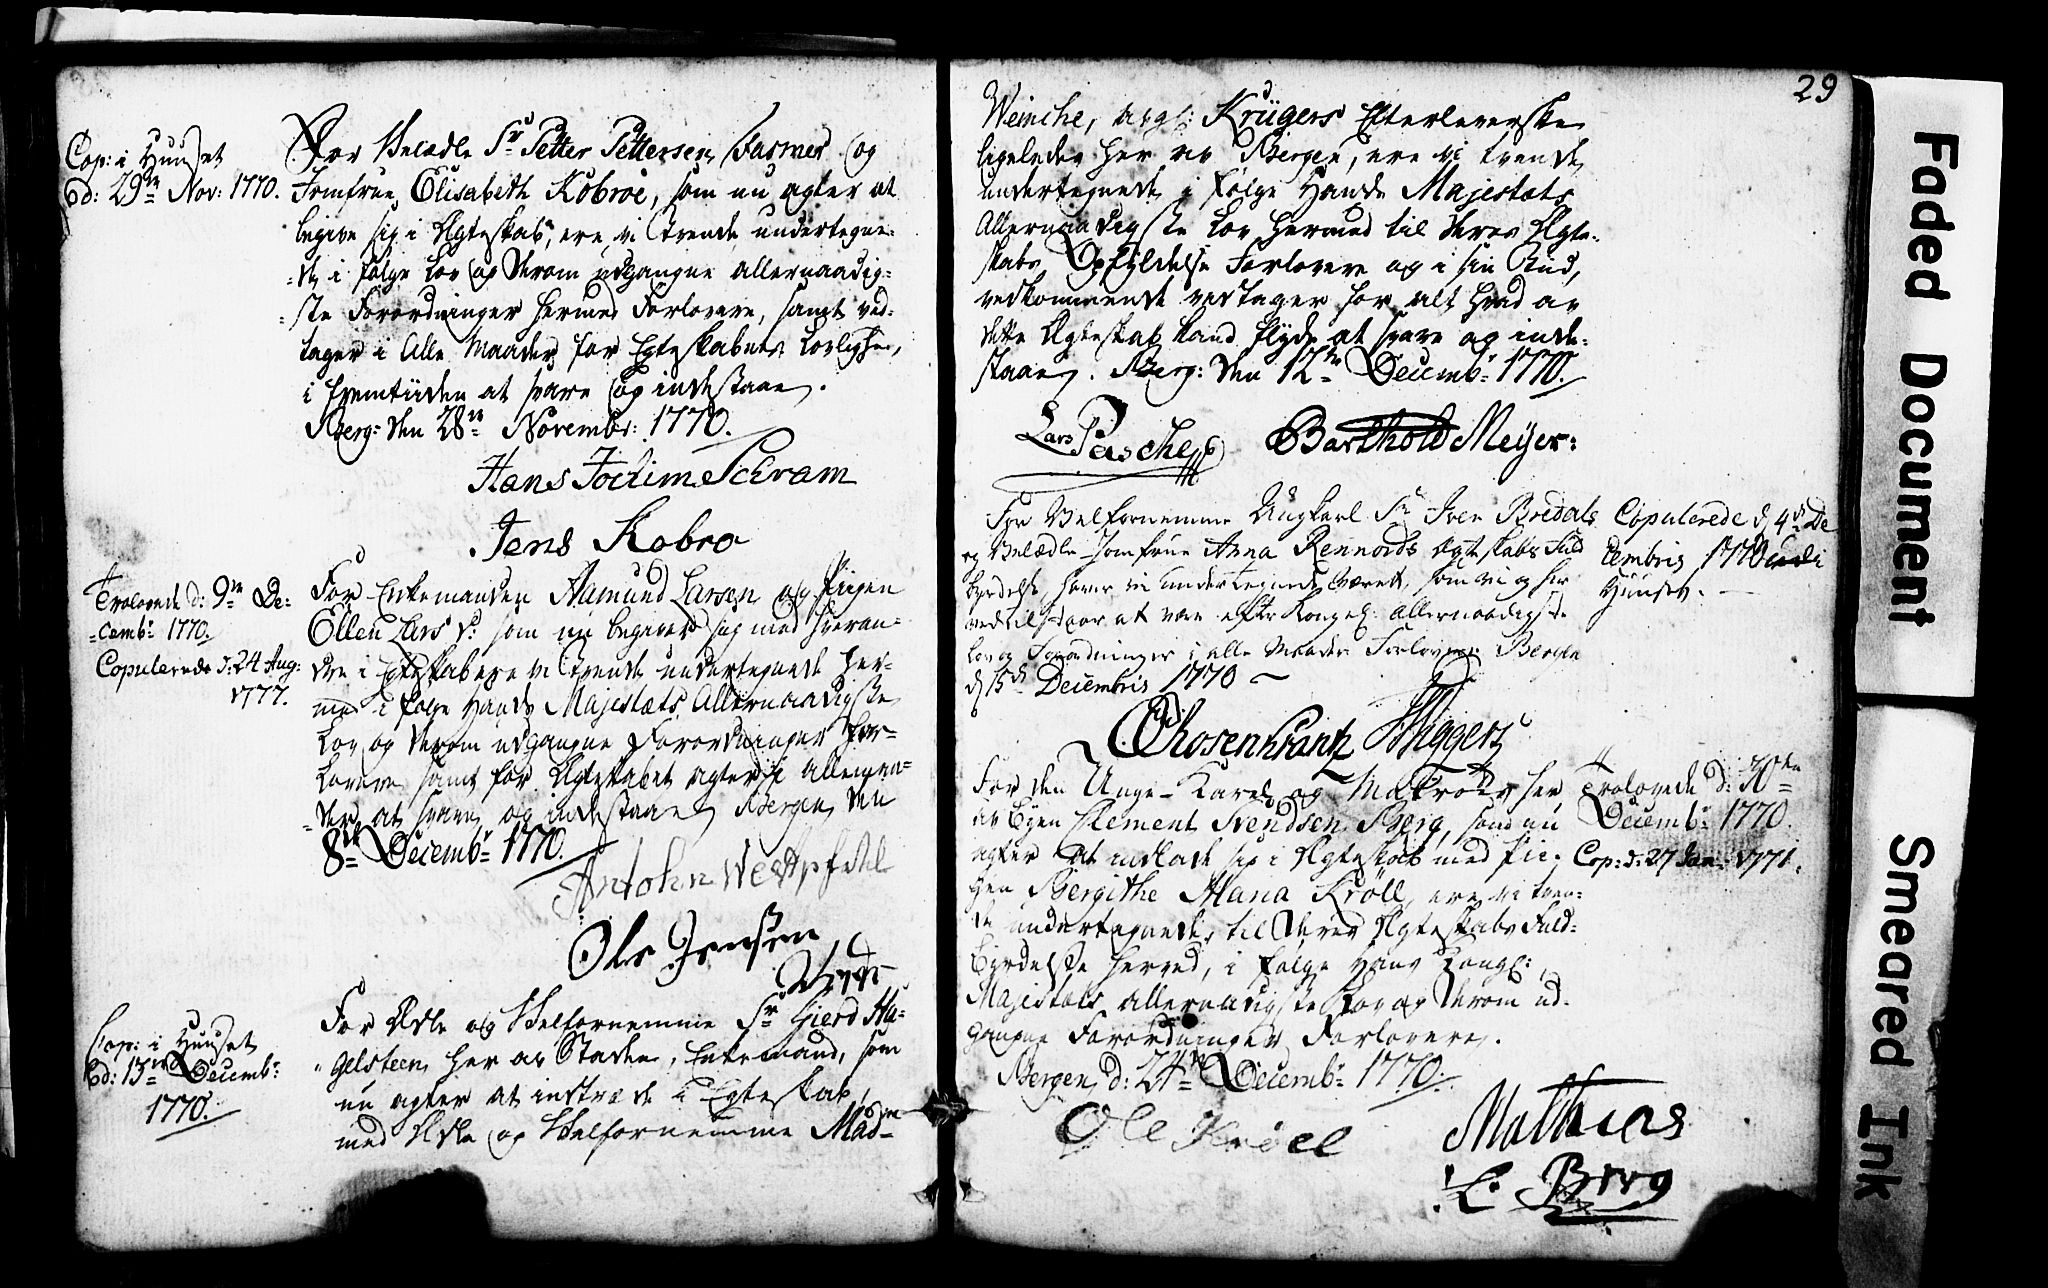 Cop: i Huuset
d: 29de Nov: 1770.
For Velædle Sr Petter Pettersen Fasmer og
Jomfrue Elisabeth Kobroe, som nu agter at
begive sig i Ægteskab, ere vi tvende undertegne-
de i følge Lov og derom udgangne allernaadig-
ste Forordninger hermed Forlovere, samt ved-
tager i Alle Maader for Egteskabets Lovlighed,
i fremtiiden at svare og indestaae.
Berg: den 28de Novembr: 1770.
Hans Jochim Schram
Jens Kobro
Trolovede d: 9de De-
cembr 1770.
Copulerede d: 24 Aug:
1777.
For Enkemanden Aamund Larsen og Pigen
Ellen Lars Dr som nu begiver sig med hveran-
dre i Egteskab ere vi tvende undertegnede her-
med i følge Hands Majestæts Allernaadigste
Lov og derom udgangne Forordninger For-
lovere samt for Ægteskabet agter i alle maa-
der at svare og indestaae Bergen den
8de Decembr 1770.
Antohn Westpfahl
Ole Jensen
Cop: i Huuset
d: 13de Decembr
1770.
For Ædle og Velfornemme Sr Gierd Ha-
gelsteen her av Staden, Enkemand, som
nu agter at indtræde i Egteskab,
med Ædle og Velfornemme Madm
29
Weinche, avgl: Krügers Efterleverske
ligeledes her av Bergen, ere vi tvende
undertegnede i følge Hands Majestæts
Allernaadigste Lov hermed til deres Ægte-
skabs Opfyldelse Forlovere og i sin Tiid,
vedkommende vedtager for alt hvad av
dette Ægteskab kand flyde at svare og inde-
staae. Berg: den 12te Decembr 1770.
Lars Pasche Barthold Meyer:
For Velfornemme Ungkarl Sr Iver Bredals
og Velædle Jomfrue Anna Rennords Ægteskabs Fuld
byrdelse, haver vi underteignede været, som vi og her
ved tilstaar at være efter Kongel: allernaadigste
Lov og Forordninger i alle Maader Forlovere Bergen
d 15de Decembris 1770
Copulerede d 4de De
cembris 1770 udi
Huuset.
CRosenkrantz Wiggers
For den Unge-Karl og Matros her
av Byen Clement Svendsen Berg, som nu
agter at indlade sig i Ægteskab med Pii-
gen Bergithe Maria Kröll, ere vi tven-
de undertegnede, til deres Ægteskabs Fuld-
byrdelse herved, i følge Hans Kongl:
Majestæts allernaadigste Lov og derom ud-
gangne Forordninger Forlovere.
Bergen d: 24de Decembr 1770.
Trolovede d: 30ten
Decembr 1770.
Cop: d: 27 Jan: 1771.
Ole Kröll
Matthias
C. Berg
Faded Document
Smeared Ink